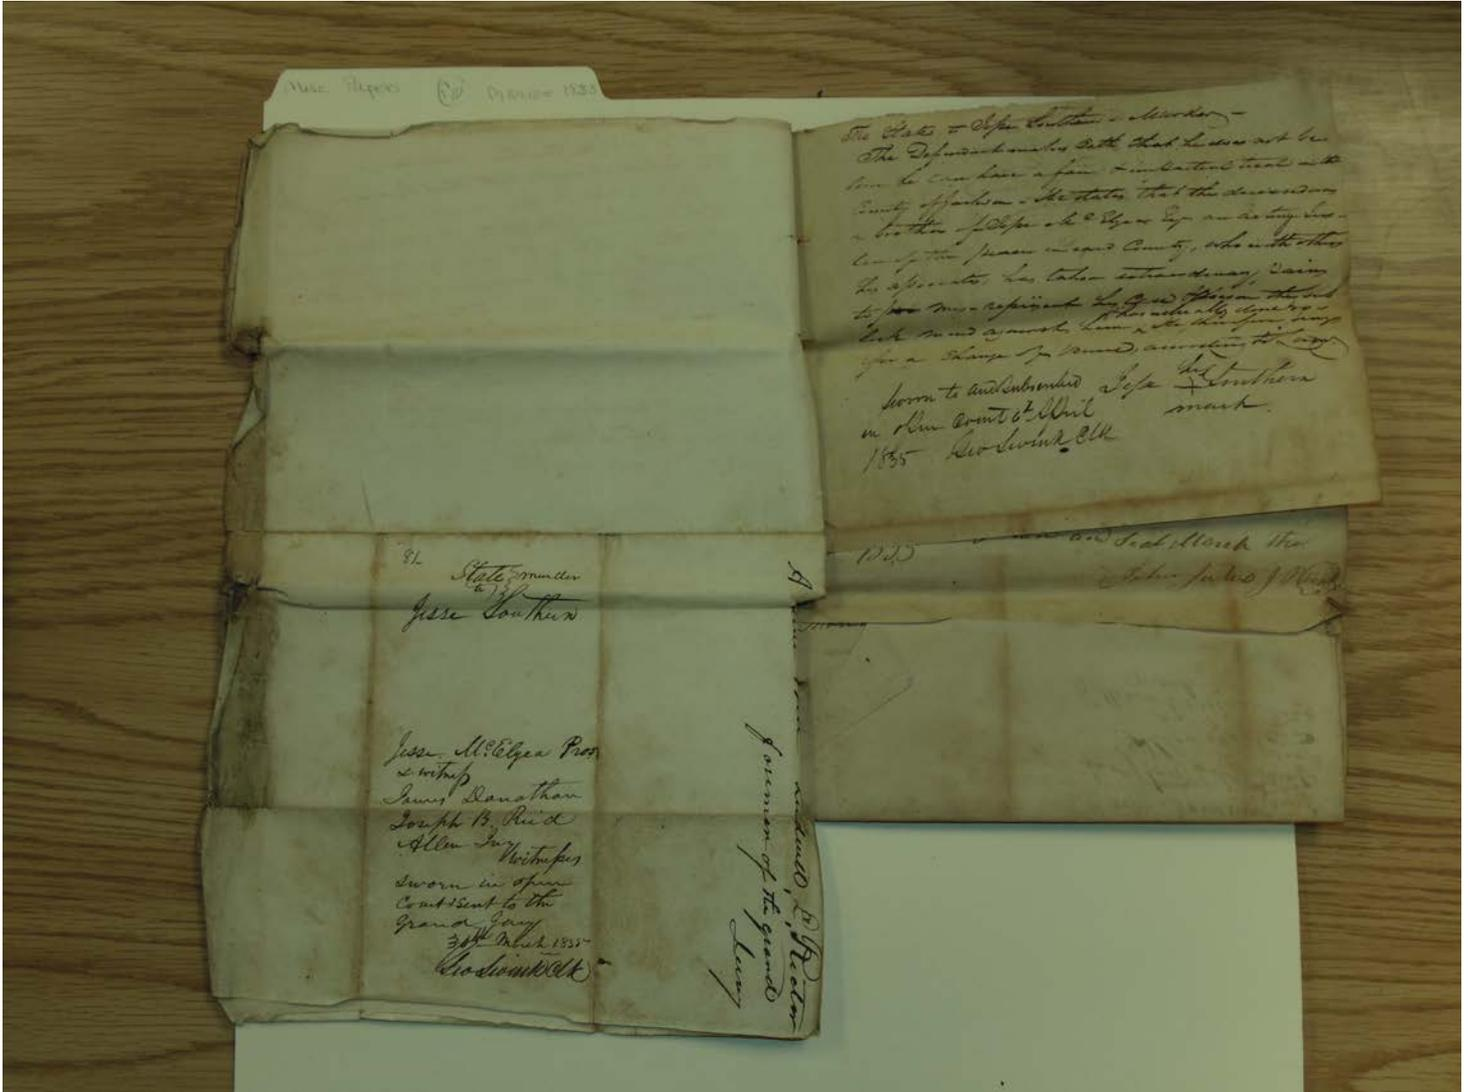 Misc Papers
1833
The State vs Jesse Southern - Murder -
The Defendant makes Oath that he does not be-
lieve he can have a fair & impartial trial in the
County of Jackson - He states that the deceased was
a brother of Jesse McElyea Esq an acting Jus-
tice of the peace in said County, who with others
his associates, has taken extraordinary pains
to mis-represent his case & poison the pub
lick mind against him & has actually done so -
He therefore prays
for a change of venue, according to Law
Sworn to and subscribed Jesse his Southern
in open Court 6th April mark
1835 Geo Swink Clk
and Seal March the
81
State murder
vs
Jesse Southern
Jesse McElyea Pros
& witness
James Donathan
Joseph B. Reid
Allen Ivy
witnesses
sworn in open
Court & sent to the
Grand Jury
30th March 1835
Geo Swink Clk
A true Ludwell E Rector
foreman of the grand
Jury